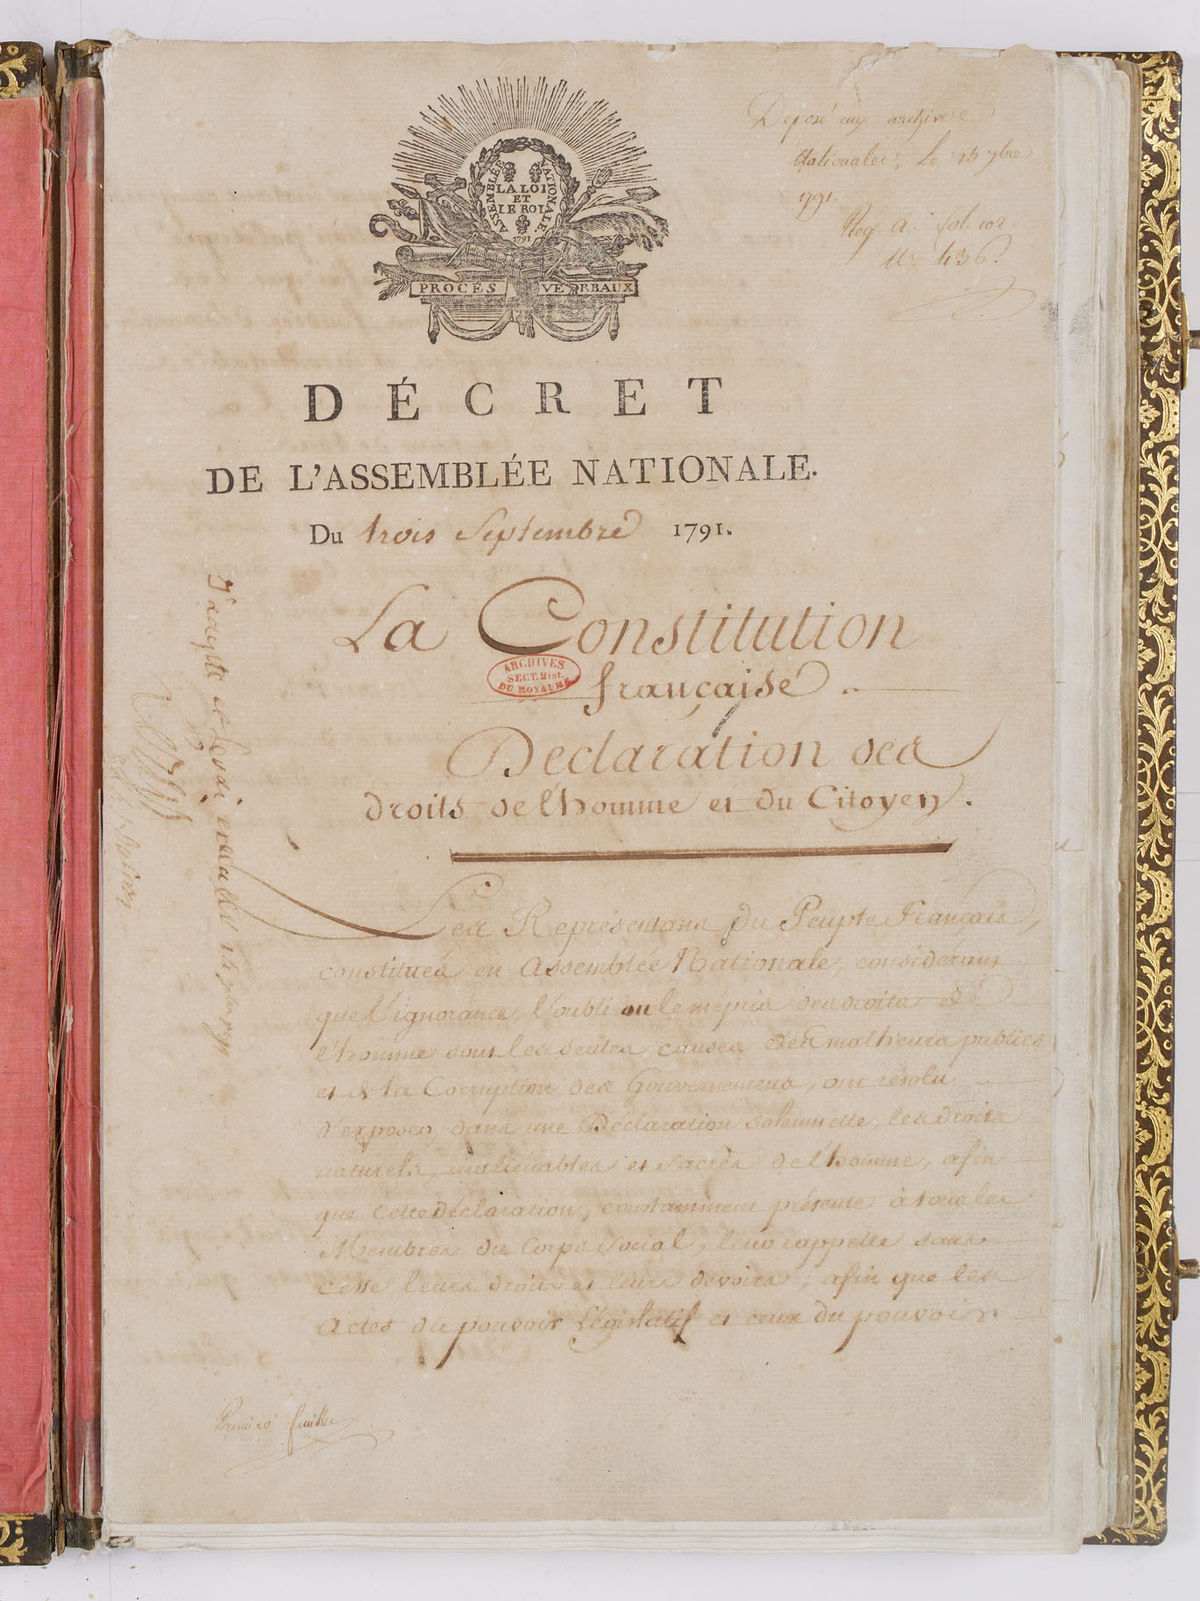 ASSEMBLÉE NATIONALE.
LA LOI
ET
LE ROI.
1791
PROCÈS VERBAUX
Deposé aux archives
Nationales, Le 15 7bre
1791.
Reg. A. fol. 102.
no. 436.
DÉCRET
DE L'ASSEMBLÉE NATIONALE.
Du trois Septembre 1791.
La Constitution
française.
ARCHIVES
SECT. Hist.
DU ROYAUME
Déclaration des
droits de l'homme et du Citoyen.
J'accepte et ferai executer 14 7bre 1791
Louis
Les Représentans du Peuple Français,
constitués en Assemblée Nationale, considérant
que l'ignorance, l'oubli ou le mépris des droits de
l'homme sont les seules causes des malheurs publics
et de la Corruption des Gouvernemens, ont résolu
d'exposer, dans une Déclaration solemnelle, les droits
naturels, inaliénables et sacrés de l'homme, afin
que cette déclaration, constamment présente à tous les
Membres du Corps Social, leur rappelle sans
cesse leurs droits et leurs devoirs; afin que les
Actes du pouvoir Législatif et ceux du pouvoir
Premier feuillet